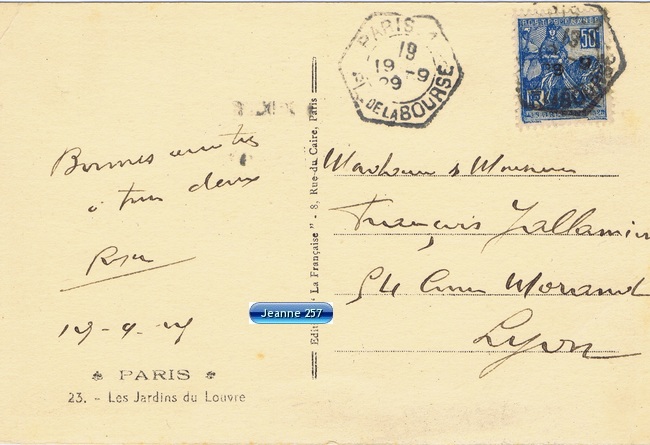 PARIS
19
19 - 9
29
PL. DE LA BOURSE
POSTES FRANCE
50
Bonnes amitiés
à tous deux
19-9-29
Jeanne 257
❧ PARIS ❧
23. - Les Jardins du Louvre
Edit. " La Française " - 8, Rue du Caire, Paris
Madame & Monsieur
François Jallamion
54 Cours Morand
Lyon